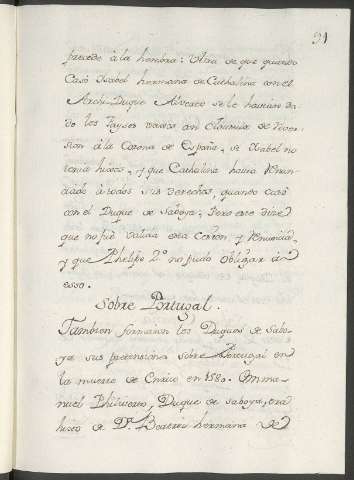 91
precede à la hembra: Otra es que quando
Casò Isabel hermana de Cathalina con el
Archi-Duque Alverto se le havian da-
do los Payses vaxos con Clausula de rever-
sion à la Corona de España, si Isabel no
tenia hixos, y que Cathalina havia renun-
ciado à todos sus derechos, quando casò
con el Duque de Saboya; Pero este dize
que no fuè valida esta Cesion, y renuncia,
y que Phelipe 2º no pudo obligar à
esso.
Sobre Portugal.
Tambien formaron los Duques de Sabo-
ya sus pretensiones sobre Portugal en
la muerte de Enrico en 1580. Mma-
nuel Philiverto, Duque de Saboya, era
hixo de Dª Beatriz hermana de